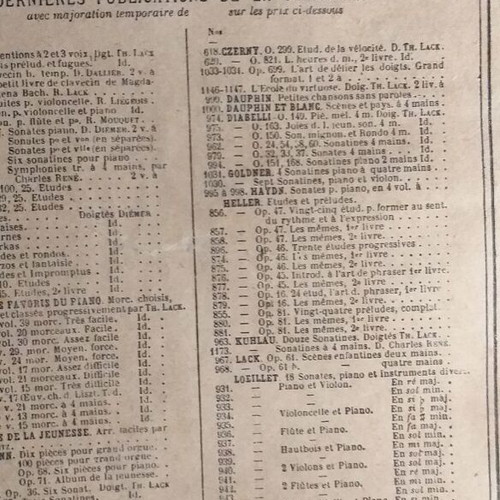 DERNIÈRES PUBLICATIONS DE
avec majoration temporaire de sur les prix ci-dessous
entions à 2 et 3 voix. Dgt. TH. LACK
is prélud. et fugues. Id.
vecin b. temp. D. DALLIER. 2 v. à
petit livre de clavecin de Magda-
ena Bach. R. LACK
uites p. violoncelle. R. LIÉGEOIS
on, p. violoncelle et piano Id.
on. p. flûte et pe. MOUQUET.
N. Sonates piano. D. DIÉMER. 2 v. à
Sonates pe et von (en séparées).
Sonates pe et vlle (en séparées).
Six sonatines pour piano
Symphonies tr. à 4 mains, par
CHARLES RENÉ. 2 v. à
100, 25. Etudes
29, 25. Etudes
32, 25. Etudes
Doigtés DIÉMER
aises. Id.
rnes Id.
rkas Id.
des et rondos. Id.
zos et fantaisie Id.
des et Impromptus Id.
10. Etudes Id.
25. Etudes, 2e livre Id.
S FAVORIS DU PIANO. Morc. choisis,
et classés progressivement par TH. LACK.
vol. 39 morc. Très facile. Id.
vol. 20 morceaux. Facile. Id.
vol. 30 morc. Assez facile Id.
v. 29, mor. Moyen. force. Id.
v. 24 mor. Moyen. force. Id.
vol. 17 mor. Assez difficile Id.
vol. 21 morceaux. Difficile Id.
vol. 15 mor. Très difficile Id.
v. 17 (Euv. ch. d. Liszt. T. d. Id.
v. 21 morc. à 4 mains. Id.
v. 13 morc. à 4 mains. Id.
v. 14 morc. à 4 mains. Id.
S DE LA JEUNESSE. Arr. faciles par
NN. Dix pièces pour grand orgue.
100 pièces pour grand orgue.
Op. 68. Six pièces pour piano.
Op. 71. Album de la jeunesse.
Six Sonat. Doigt. TH. LACK
Nos
618. CZERNY. O. 299. Etud. de la vélocité. D. TH. LACK.
629. — O. 821. L. heures d. m., 2e livre. Id.
1033-1034. Op. 699. L'art de délier les doigts. Grand
format. 1 et 2 à
1146-1147. L'Ecole du virtuose. Doig. TH. LACK. 2 liv. à
999. DAUPHIN. Petites chansons sans paroles
1000. DAUPHIN ET BLANC. Scènes et pays. à 4 mains.
974. DIABELLI O. 149. Piè. mél. 4 m. Doig. TH. LACK.
975. — O. 163. Joies d. l. jeun. son. 4 m. Id.
973. — O. 150. Son. mignon. et Rondo 4 m. Id.
962. — O. 24, 54, 58, 60. Sonatines 4 mains. Id.
970. — O. 32, 33, 37. Sonates 4 mains. Id.
994. — O. 151, 168. Sonatines piano 2 mains Id.
1031. GOLDNER. 4 Sonatines piano à quatre mains.
1030. — Sept Sonatines, piano et violon.
995 à 998. HAYDN. Sonates p. piano, en 4 vol. à
HELLER. Etudes et préludes.
856. — Op. 47. Vingt-cinq étud. p. former au sent.
du rythme et à l'expression
857. — Op. 47. Les mêmes, 1er livre
858. — Op. 47. Les mêmes, 2e livre.
896. — Op. 46. Trente études progressives
874. — Op. 46. Les mêmes, 1er livre
875. — Op. 46. Les mêmes, 2e livre.
876. — Op. 45. Introd. à l'art de phraser 1er livre.
877. — Op. 45. Les mêmes, 2e livre.
878. — Op. 16. 24 étud. l'art d. phraser, 1er livre
879. — Op. 16. Les mêmes, 2e livre.
855. — Op. 81. Vingt-quatre préludes, complet.
880. — Op. 81. Les mêmes, 1er livre
881. — Op. 81. Les mêmes, 2e livre.
963. KUHLAU. Douze Sonatines. Doigtés TH. LACK.
1173. Sonatines à 4 mains. D. CHARLES RENÉ.
967. LACK. Op. 61. Scènes enfantines deux mains.
968. — Op. 61 b. quatre mains.
LOEILLET. 18 Sonates, piano et instruments divers.
931. — Piano et Violon. En ré maj.
932. — — En sol min.
933. — — En si ♭ maj.
934. — Violoncelle et Piano. En si ♭ maj.
935. — — En fa ♯ min.
936. — Flûte et Piano. En sol maj.
937. — — En mi maj.
938. — Hautbois et Piano. En mi min.
939. — — En sol maj.
940. — 2 Violons et Piano. En mi maj.
941. — — En ré min.
942. — 2 Flûtes et Piano. En